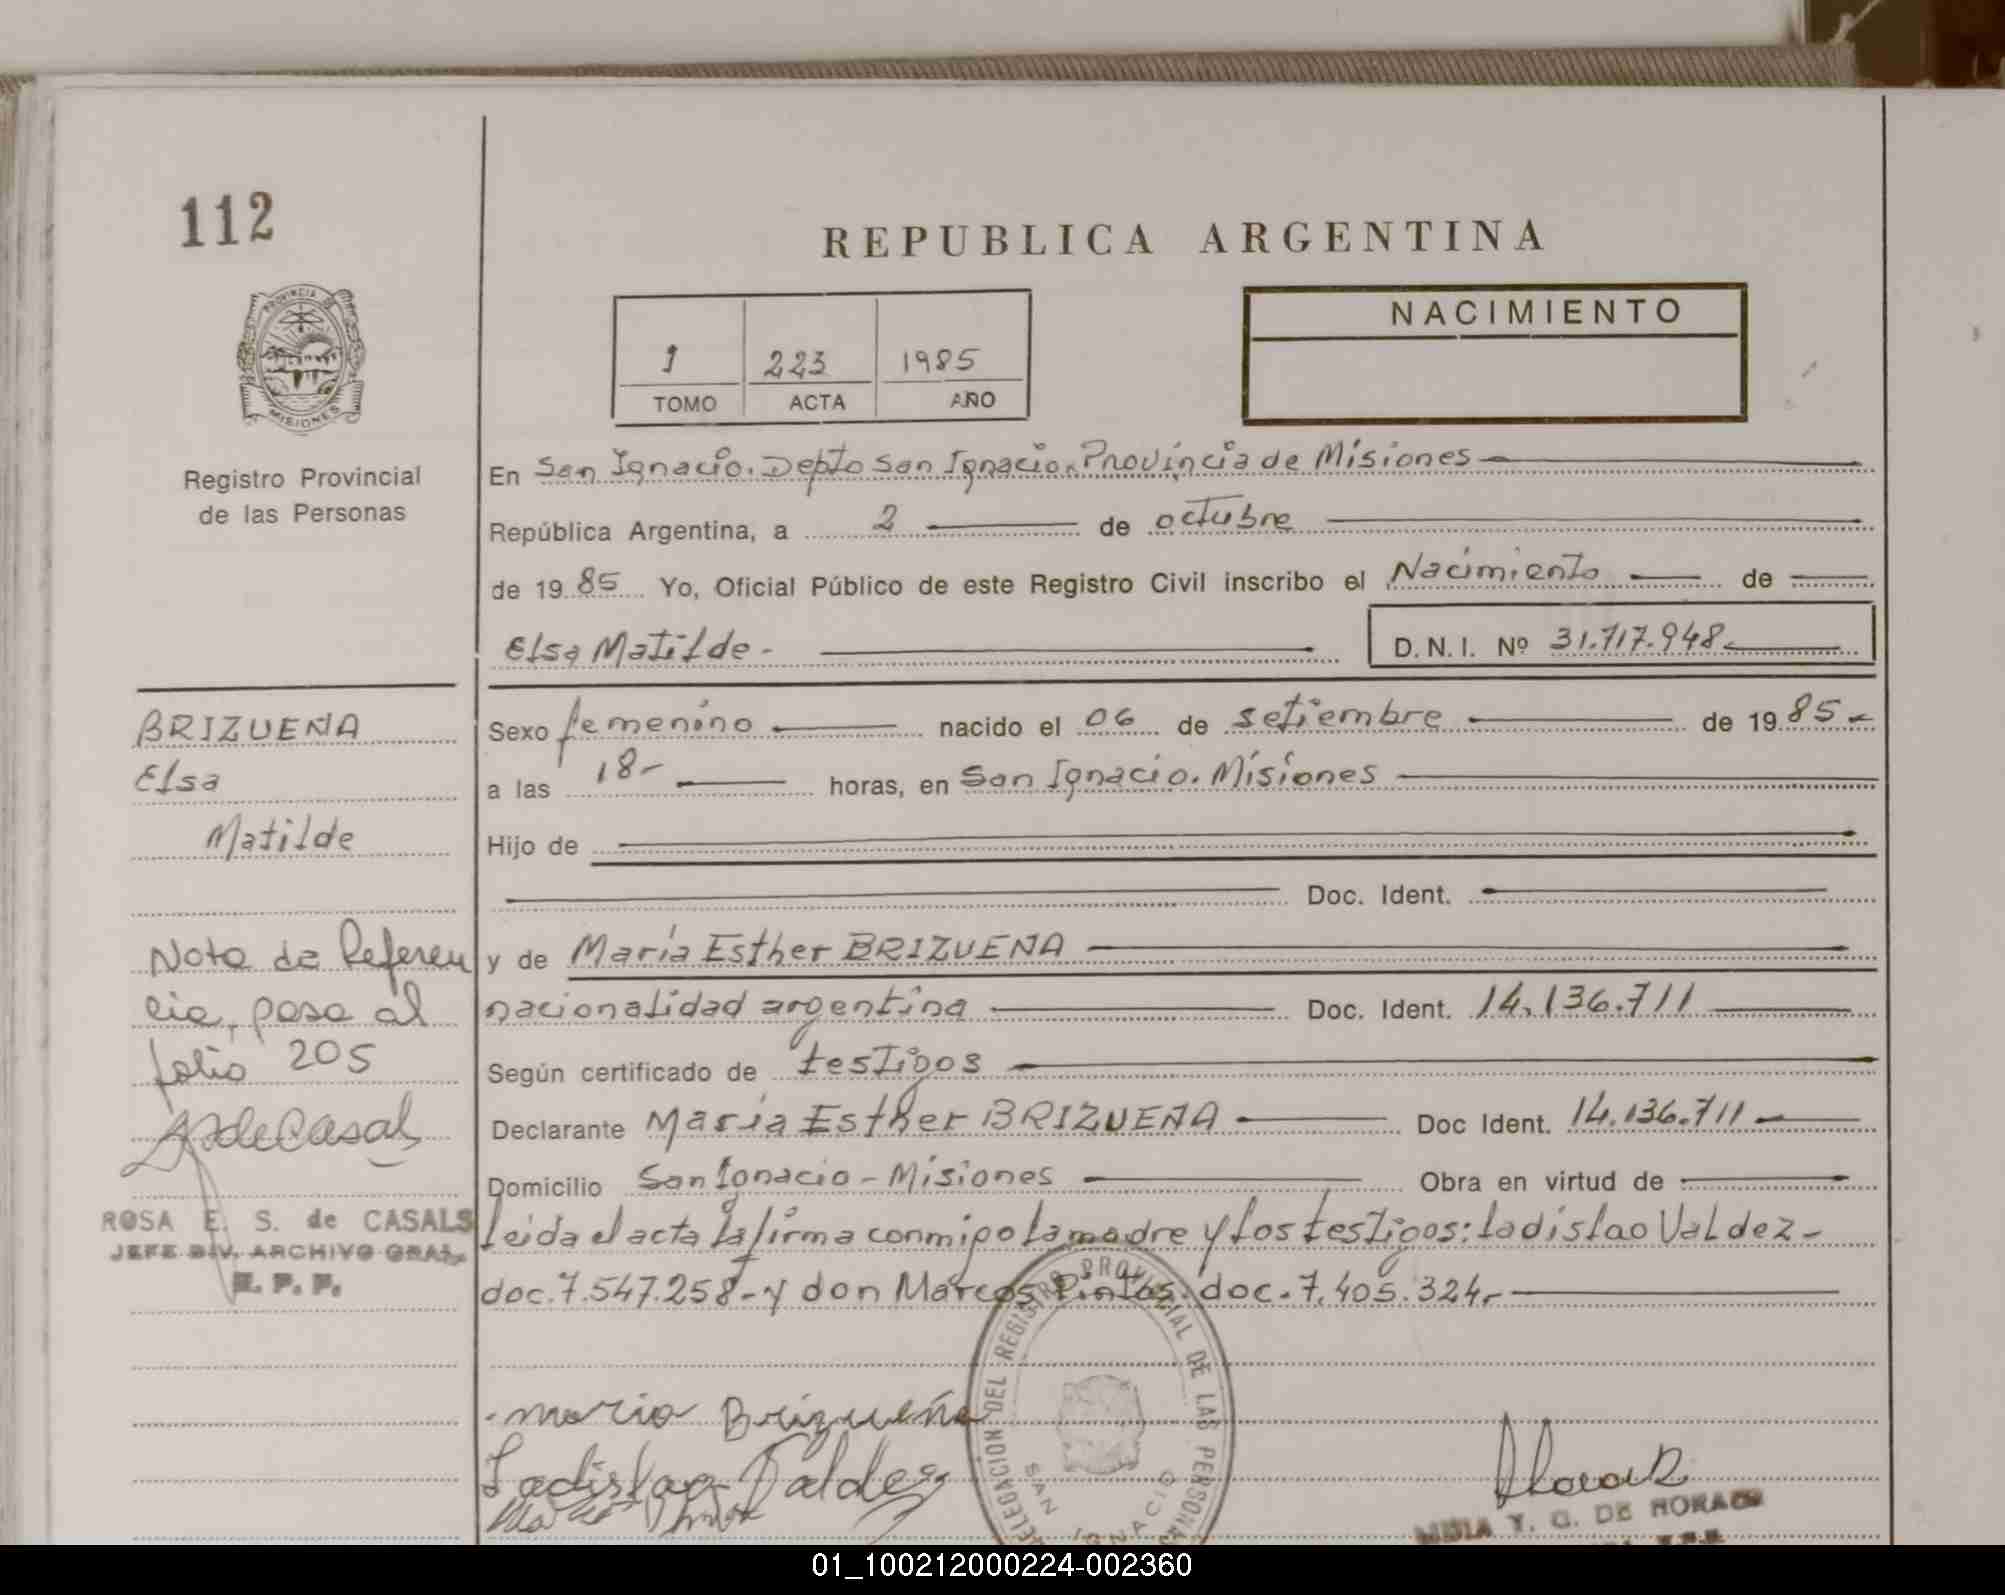 112
REPUBLICA ARGENTINA
NACIMIENTO
1 223 1985
TOMO ACTA AÑO
PROVINCIA DE
MISIONES
Registro Provincial
de las Personas
En San Ignacio. Depto San Ignacio. Provincia de Misiones
República Argentina, a 2 de octubre
de 1985 Yo, Oficial Público de este Registro Civil inscribo el Nacimiento de
Elsa Matilde - D.N.I. Nº 31.717.948
BRIZUEÑA
Elsa
Matilde
Sexo femenino nacido el 06 de setiembre de 1985
a las 18- horas, en San Ignacio. Misiones
Hijo de
Doc. Ident.
y de María Esther BRIZUEÑA
nacionalidad argentina Doc. Ident. 14.136.711
Según certificado de testigos
Declarante María Esther BRIZUEÑA Doc Ident. 14.136.711
Domicilio San Ignacio - Misiones Obra en virtud de
leida el acta la firma conmigo la madre y los testigos: Ladislao Valdez-
doc. 7.547.258- y don Marcos Pintos. doc. 7.405.324.
Nota de Referen
cia, pasa al
folio 205
ROSA E. S. de CASALS
JEFE DIV. ARCHIVO GRAL.
R. P. P.
Maria Brizueña
Ladislao Valdez
DELEGACION DEL REGISTRO PROVINCIAL DE LAS PERSONAS
SAN IGNACIO
Y. G. DE MORAES
01_100212000224-002360